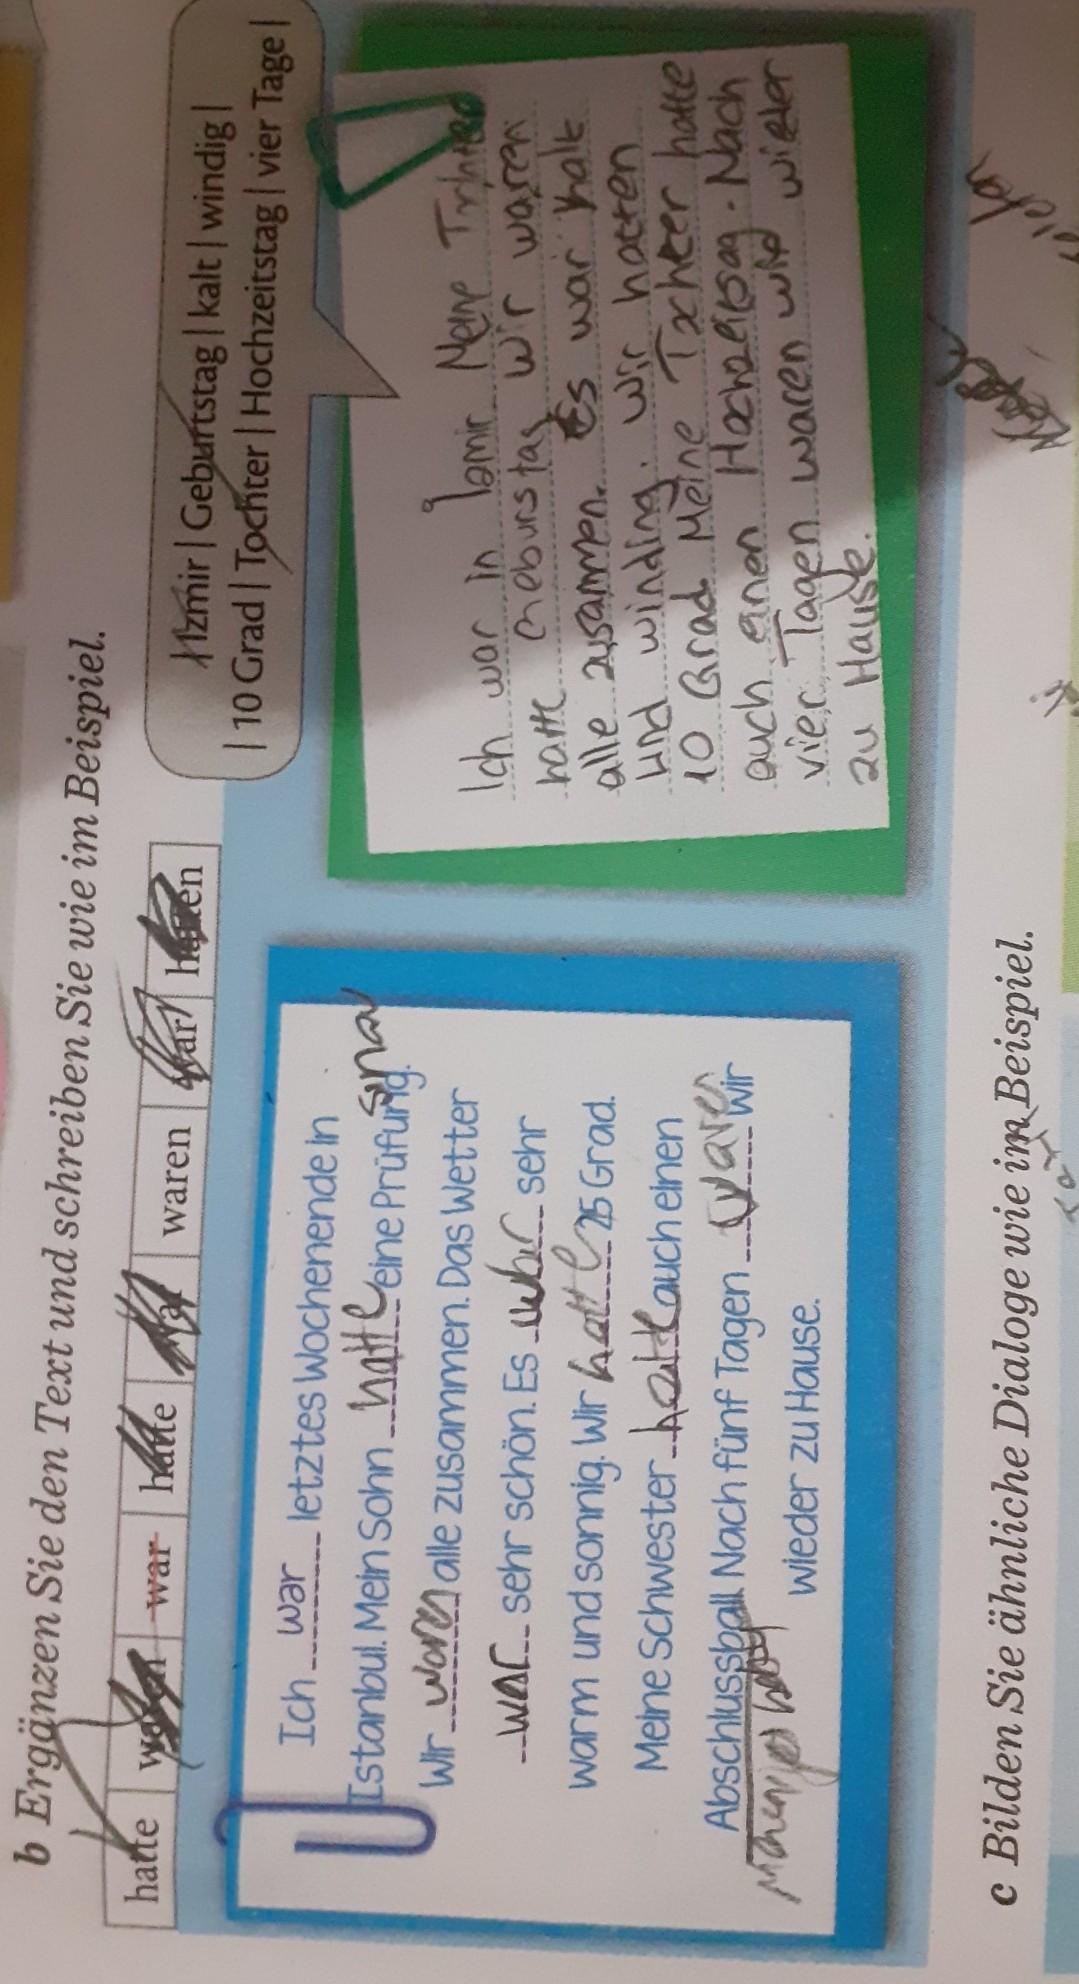 b Ergänzen Sie den Text und schreiben Sie wie im Beispiel.
hatte waren war hatte war waren war hatten
Ich war letztes Wochenende in
Istanbul. Mein Sohn hatte eine Prüfung. sınav
Wir waren alle zusammen. Das Wetter
war sehr schön. Es war sehr
warm und sonnig. Wir hatte 25 Grad.
Meine Schwester hatte auch einen
Abschlussball. Nach fünf Tagen waren wir
mezuniyet balosu wieder zu Hause.
Izmir | Geburtstag | kalt | windig |
| 10 Grad | Tochter | Hochzeitstag | vier Tage |
Ich war in Izmir Meine
hatte Geburstag wir waren
alle zusammen. Es war kalt
und winding. wir hatten
10 Grad Meine Tochter hatte
auch einen Hochzeitsag. Nach
vier Tagen waren wir wieter
zu Hause.
c Bilden Sie ähnliche Dialoge wie im Beispiel.